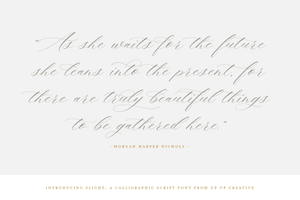 "As she waits for the future
she leans into the present, for
there are truly beautiful things
to be gathered here."
- MORGAN HARPER NICHOLS -
INTRODUCING ALIGHT, A CALLIGRAPHIC SCRIPT FONT FROM UP UP CREATIVE